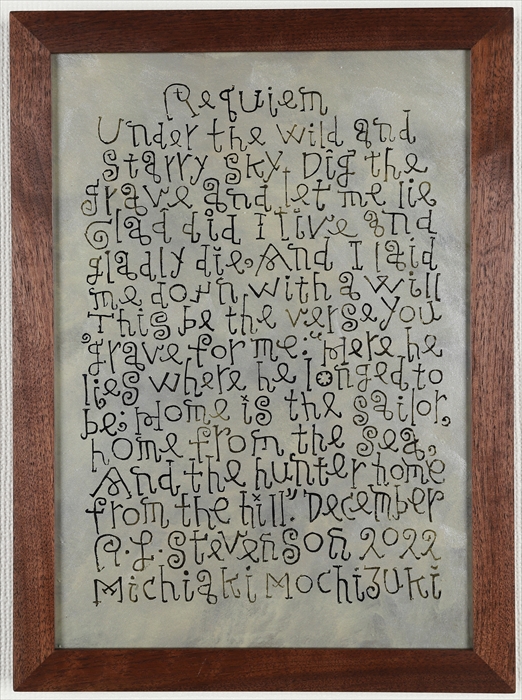 Requiem
Under the wild and
starry sky, Dig the
grave and let me lie
Glad did I live and
gladly die, And I laid
me down with a will
This be the verse you
grave for me: "Here he
lies where he longed to
be; Home is the sailor,
home from the sea,
And the hunter home
from the hill." December
R.L.Stevenson 2022
Michiaki Mochizuki